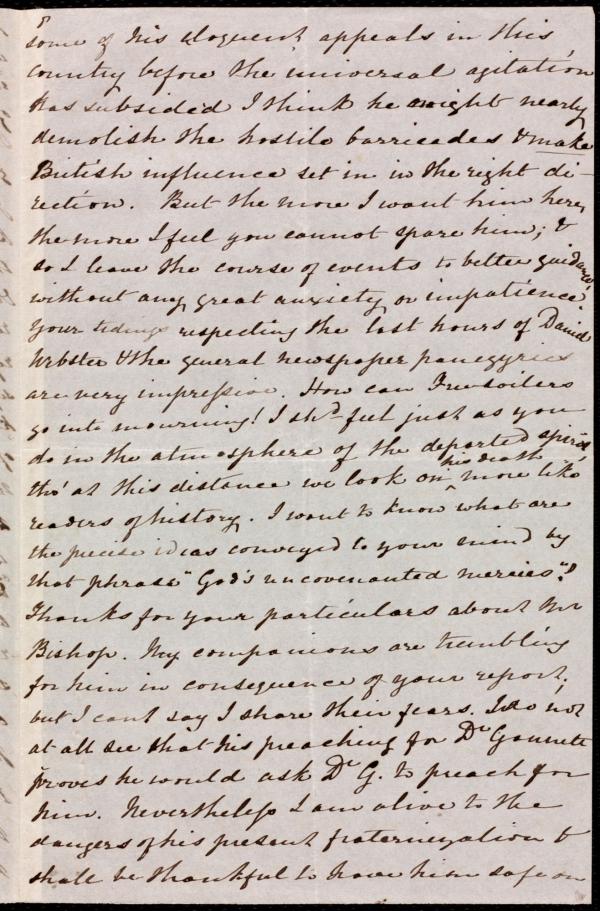 8
some of his eloquent appeals in this
country before the universal agitation
has subsided I think he might nearly
demolish the hostile barricades & make
British influence set in in the right di-
rection. But the more I want him here,
the more I feel you cannot spare him; &
so I leave the course of events to better guidance,
without any great anxiety or impatience.
Your tidings respecting the last hours of Daniel
Webster & the general newspaper panegyrics
are very impressive. How can Freesoilers
go into mourning! I shd. feel just as you
do in the atmosphere of the departed spirit
tho' at this distance we look on his death more like
readers of history. I want to know what are
the precise ideas conveyed to your mind by
that phrase "God's uncovenanted mercies"?
Thanks for your particulars about Mr
Bishop. My companions are trembling
for him in consequence of your report;
but I can't say I share their fears. I do not
at all see that his preaching for Dr Gannett
proves he would ask Dr G. to preach for
him. Nevertheless I am alive to the
dangers of his present fraternization &
shall be thankful to have him safe on